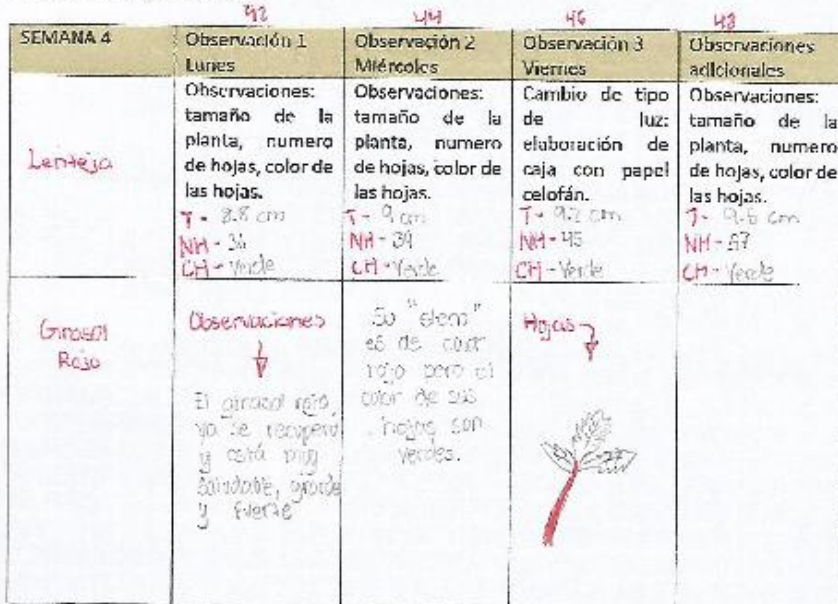 42 44 46 48
SEMANA 4
Observación 1
Lunes
Observación 2
Miércoles
Observación 3
Viernes
Observaciones
adicionales
Lenteja
Observaciones:
tamaño de la
planta, numero
de hojas, color de
las hojas.
T - 8.8 cm
NH - 36
CH - Verde
Observaciones:
tamaño de la
planta, numero
de hojas, color de
las hojas.
T - 9 cm
NH - 39
CH - Verde
Cambio de tipo
de luz:
elaboración de
caja con papel
celofán.
T - 9.2 cm
NH - 45
CH - Verde
Observaciones:
tamaño de la
planta, numero
de hojas, color de
las hojas.
T - 9.6 cm
NH - 57
CH - Verde
Girasol
Rojo
Observaciones
El girasol rojo,
ya se recuperó
y está muy
saludable, grande
y fuerte
Su "stem"
es de color
rojo pero el
color de sus
hojas son
verdes.
Hojas